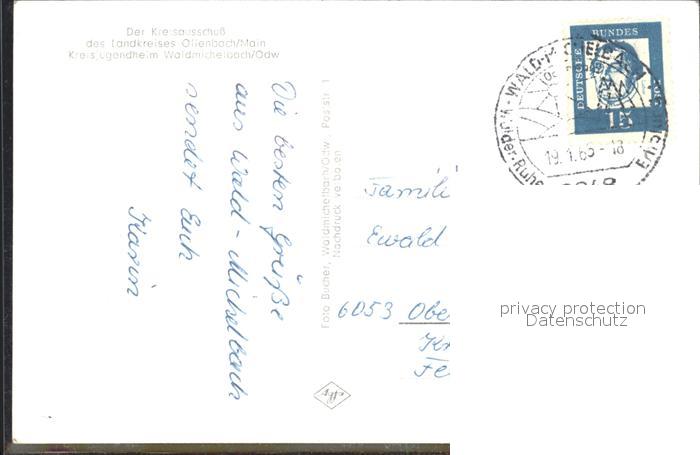 Der Kreisausschuß
des Landkreises Offenbach/Main
Kreisjugendheim Waldmichelbach/Odw
Die besten Grüße
aus Wald-Michelbach
sendet Euch
Karin
Foto Bücher, Waldmichelbach/Odw, Poststr 1
Nachdruck verboten
DEUTSCHE BUNDES
15
WALD-MICHELBACH
19.1.65-18
der Ruhe
Famili
Ewald
6053 Obe
privacy protection
Datenschutz